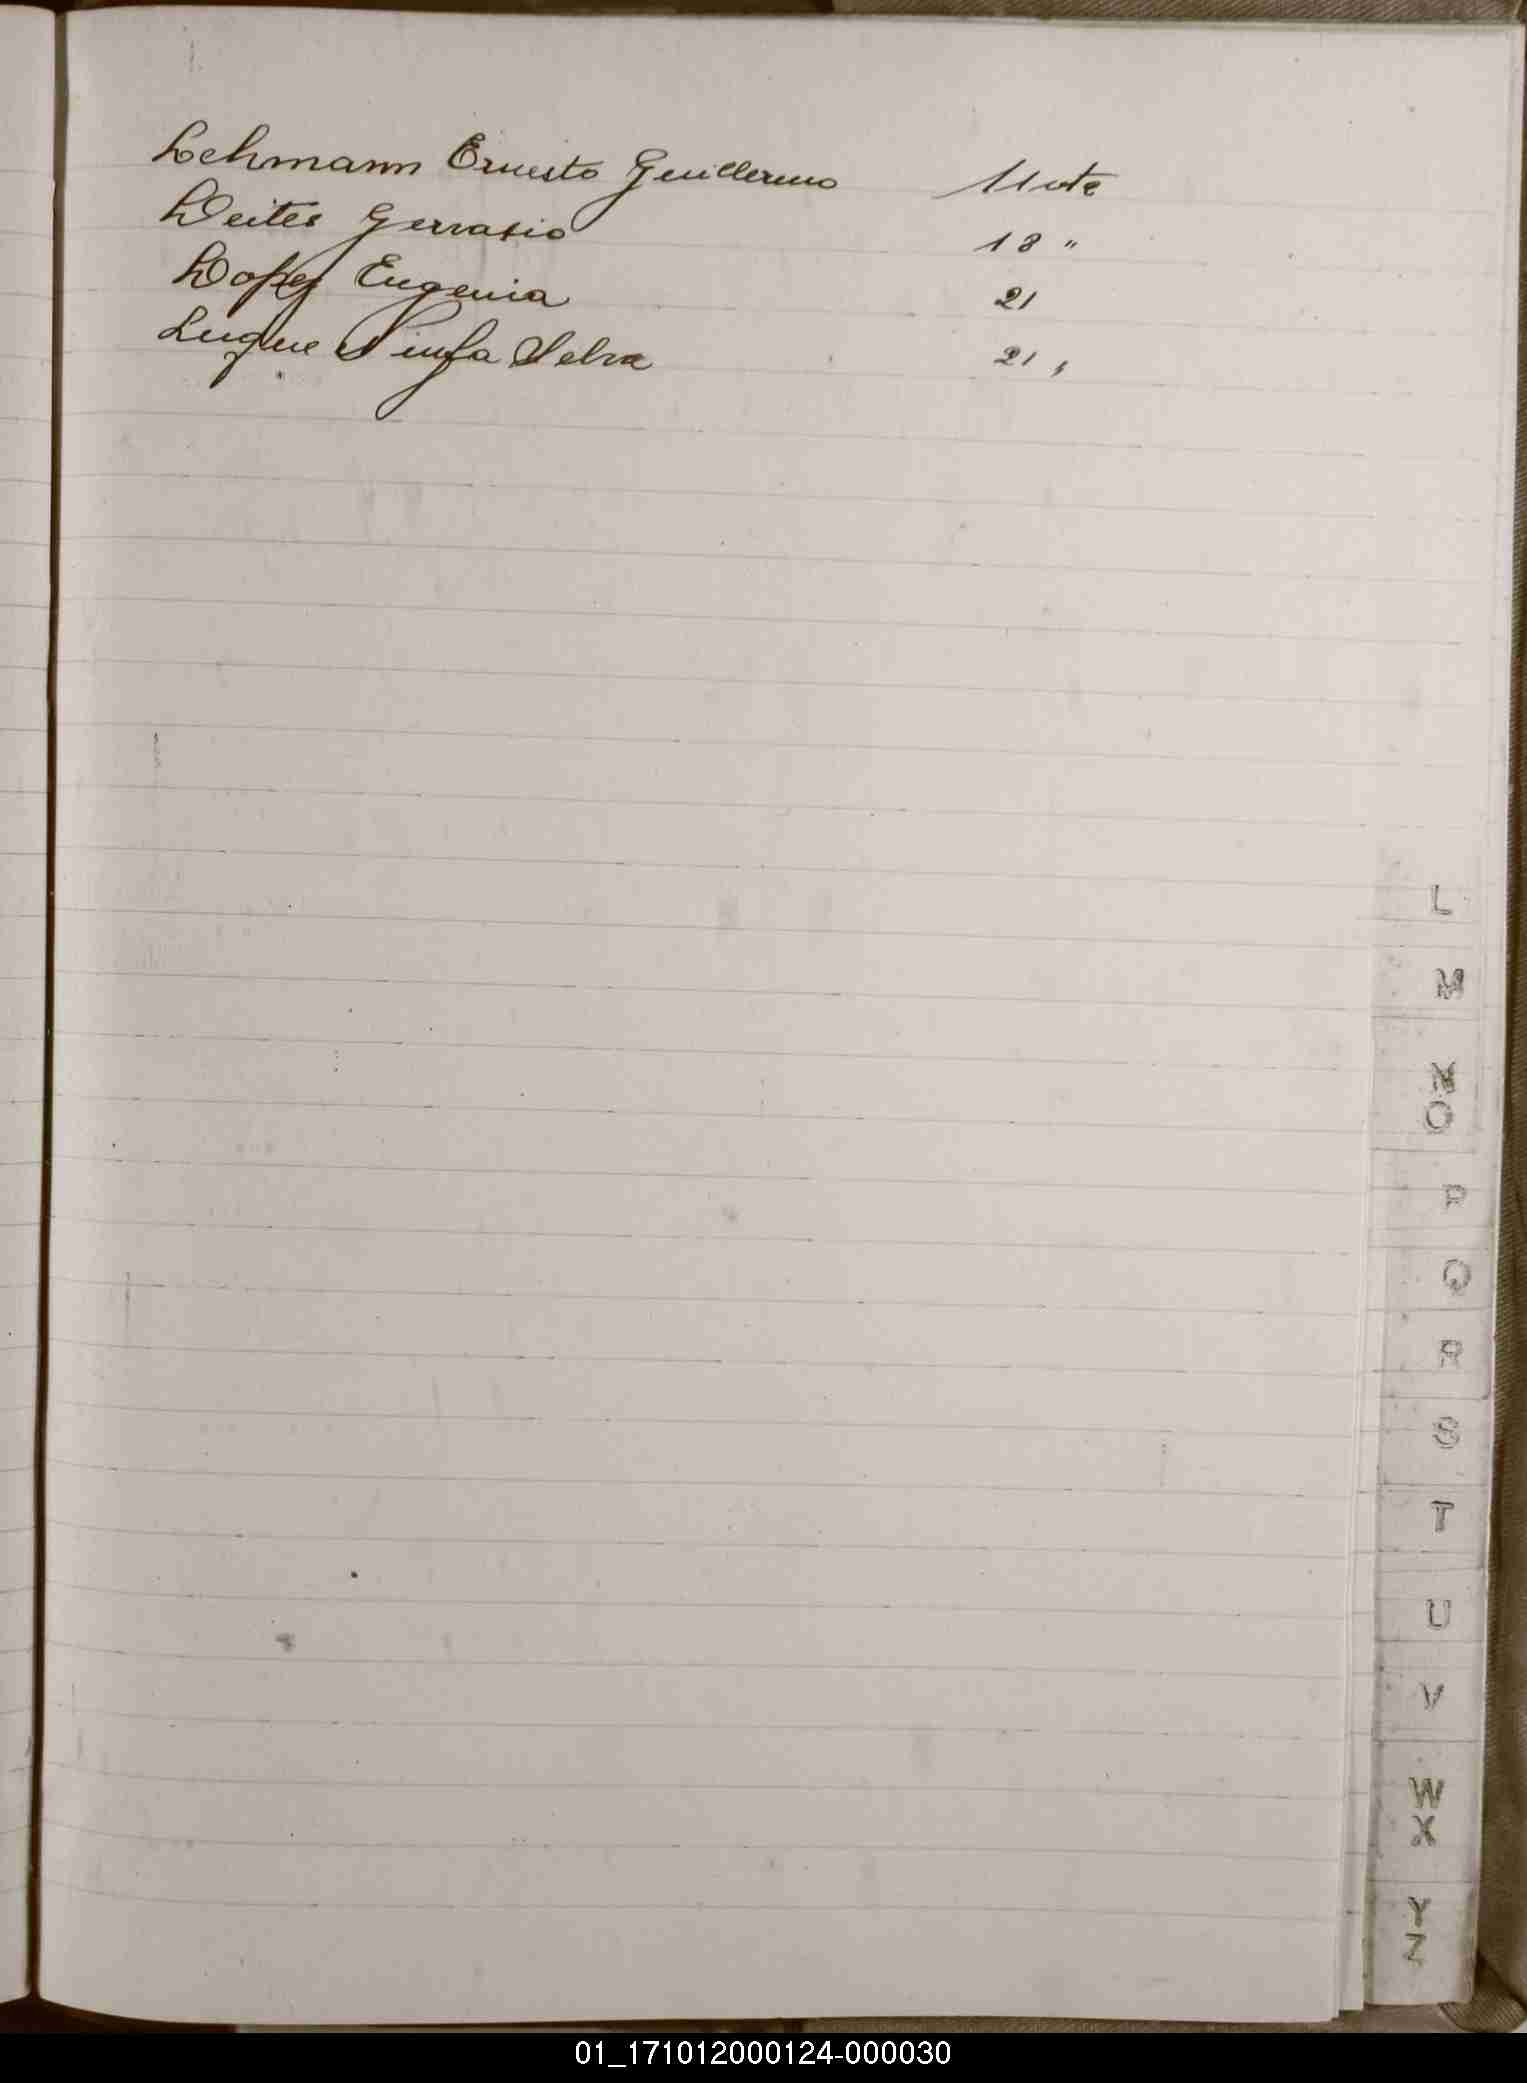 Lehmann Ernesto Guillermo 11 vte
Leites Gervasio 18 "
Lopez Eugenia 21
Luque Ninfa Selva 21 "
L
M
N
O
P
Q
R
S
T
U
V
W
X
Y
Z
01_171012000124-000030